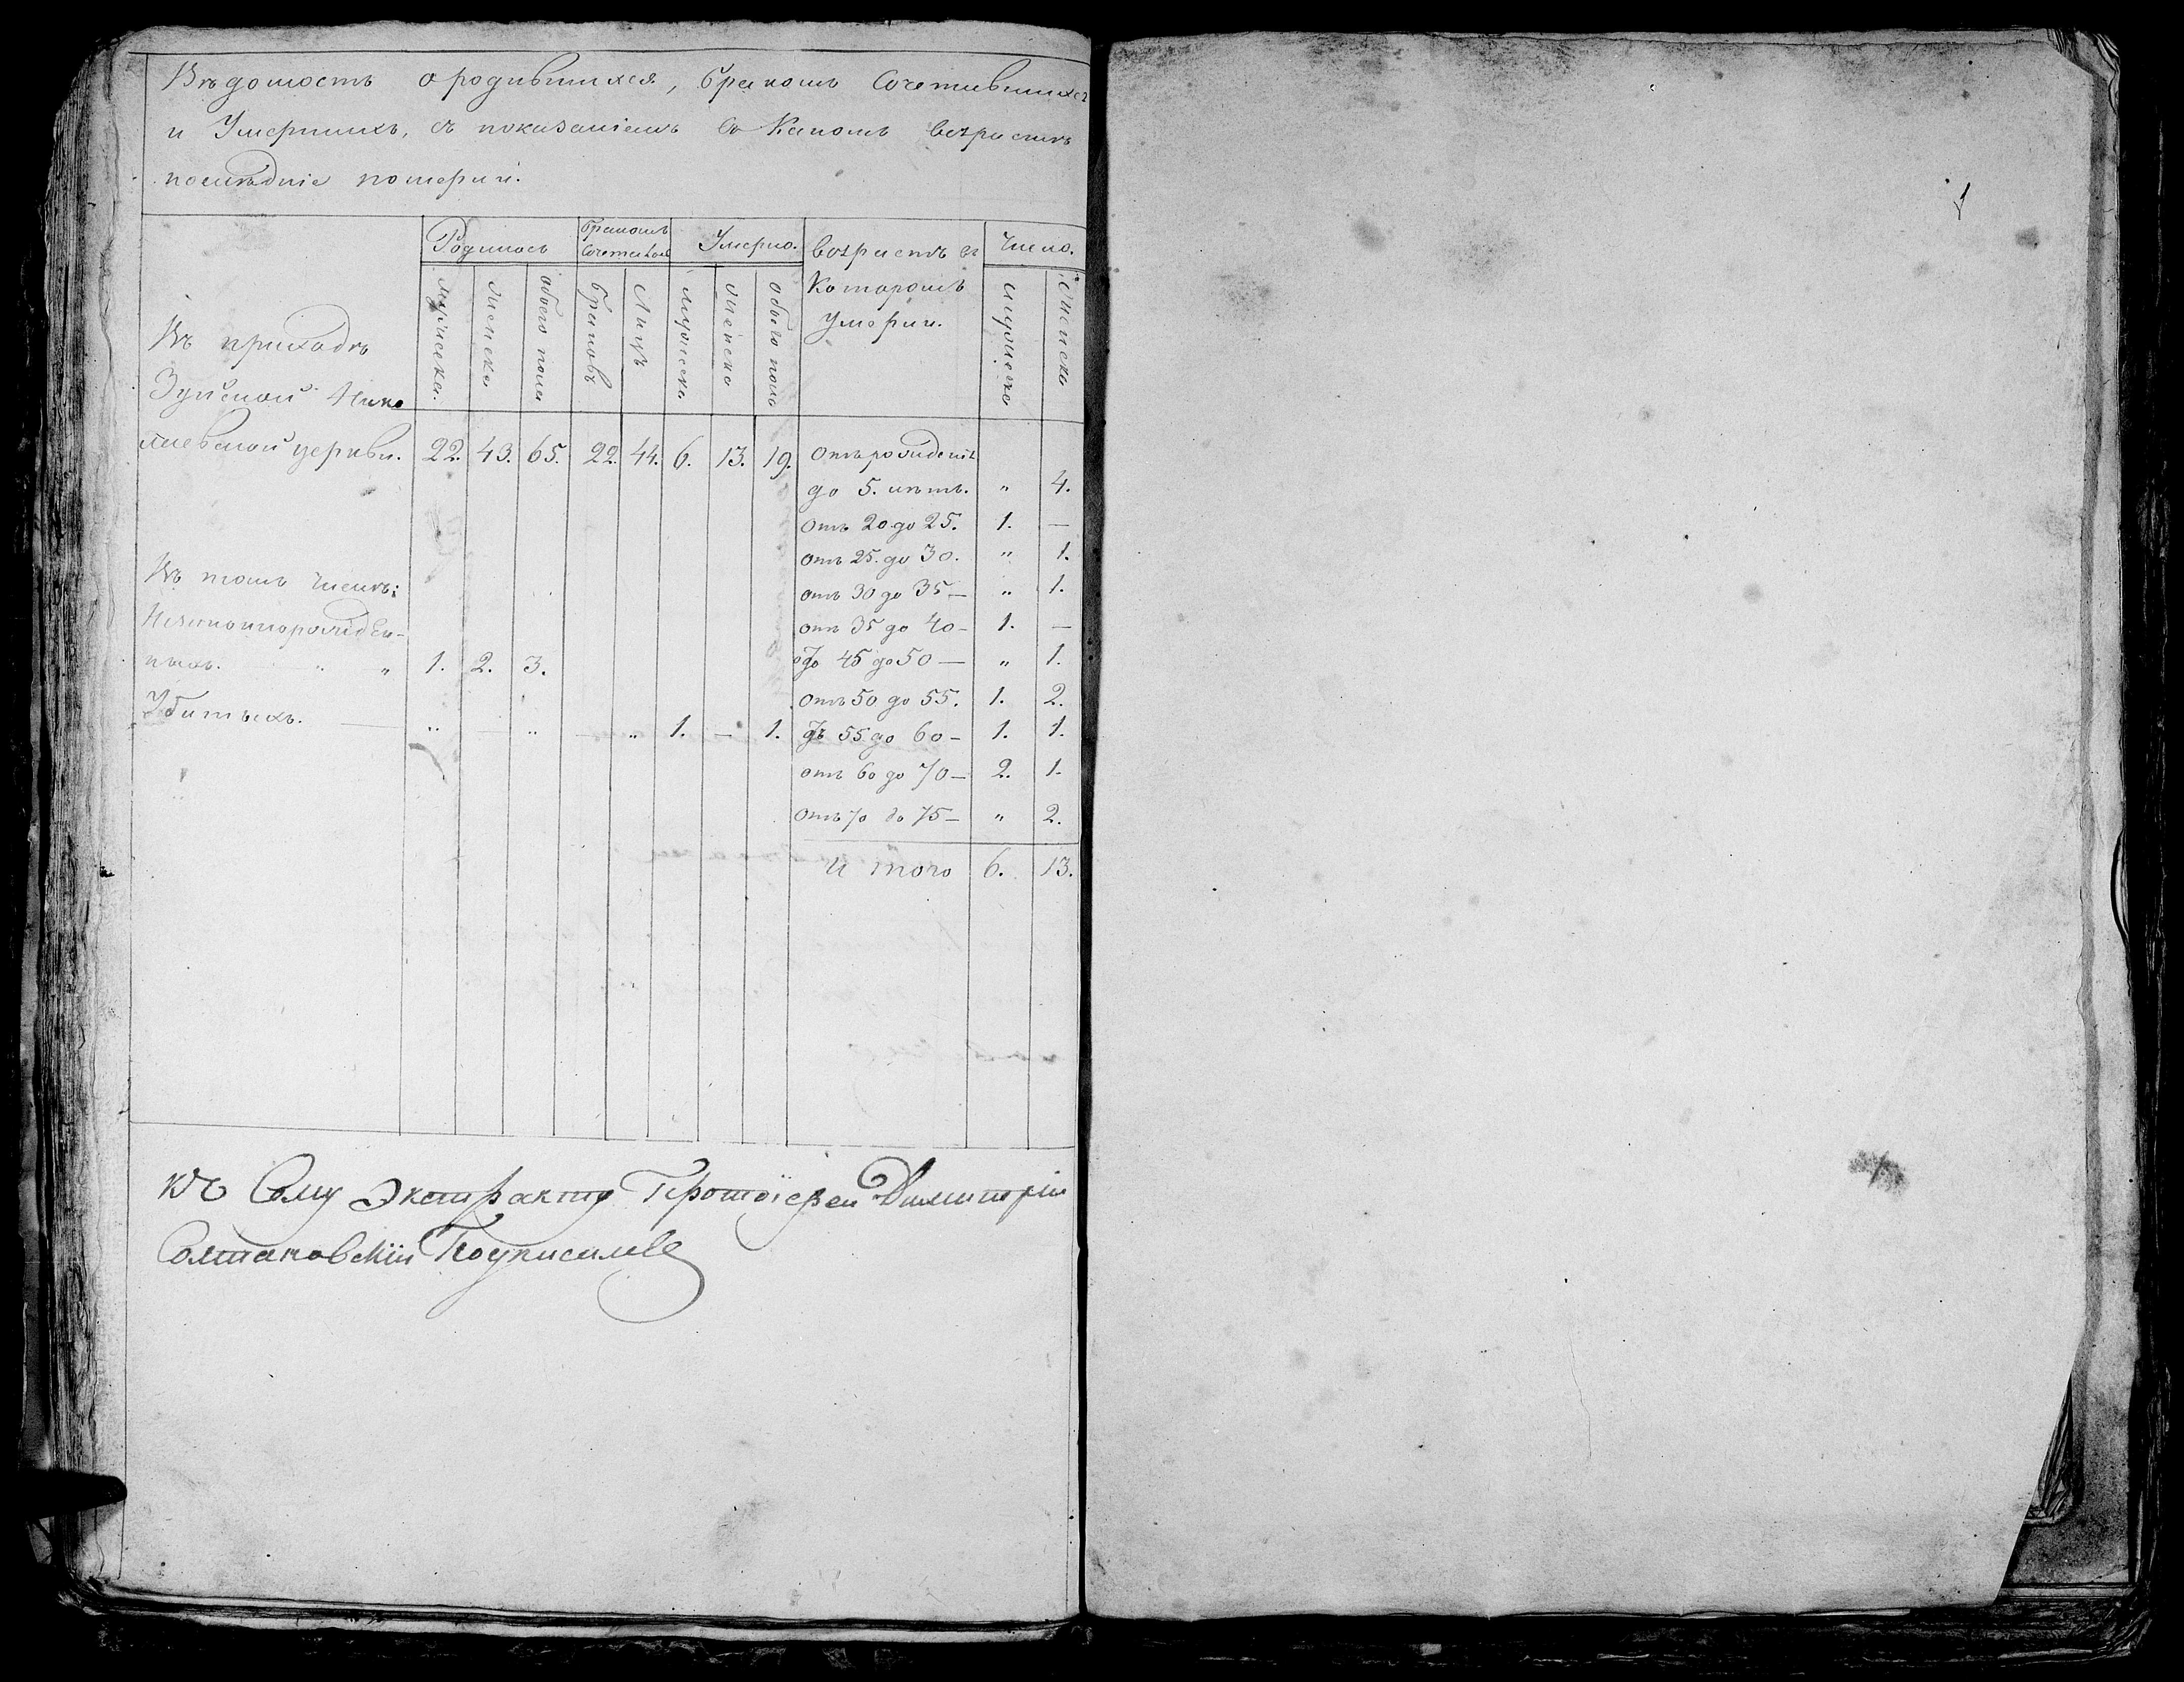 Вѣдомость о родившихся, бракомъ Сочетавшихся
и Умершихъ, съ показаніемъ въ Какомъ возрастѣ
послѣдніе померли.
Родилось
бракомъ
Сочеталось
Умерло.
возрастъ въ
Которомъ
умерли.
Число.
мужеска.
женска
обоего пола
браковъ
Лицъ
мужеска
женска
обоего пола
мужеска
женска
Въ приходѣ
Зуйской Нико
лаевской церкви. 22. 43. 65. 22. 44. 6. 13. 19. Отъ рожденія
до 5. лѣтъ. " 4.
отъ 20 до 25. 1. —
отъ 25. до 30. " 1.
Въ томъ числѣ:
отъ 30 до 35 — " 1.
Незаконнорожден-
отъ 35 до 40 — 1. —
ныхъ. " " 1. 2. 3. 45 до 50 — " 1.
отъ 50 до 55. 1. 2.
Убитыхъ. — " — " — " 1. — 1. 55 до 60 — 1. 1.
отъ 60 до 70 — 2. 1.
отъ 70 до 75 — " 2.
И того 6. 13.
къ Сему Экстракту Протоіерей Димитрій
Подписалъ